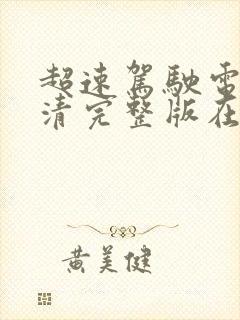 超速駕駛電
清完整版在
黃美健